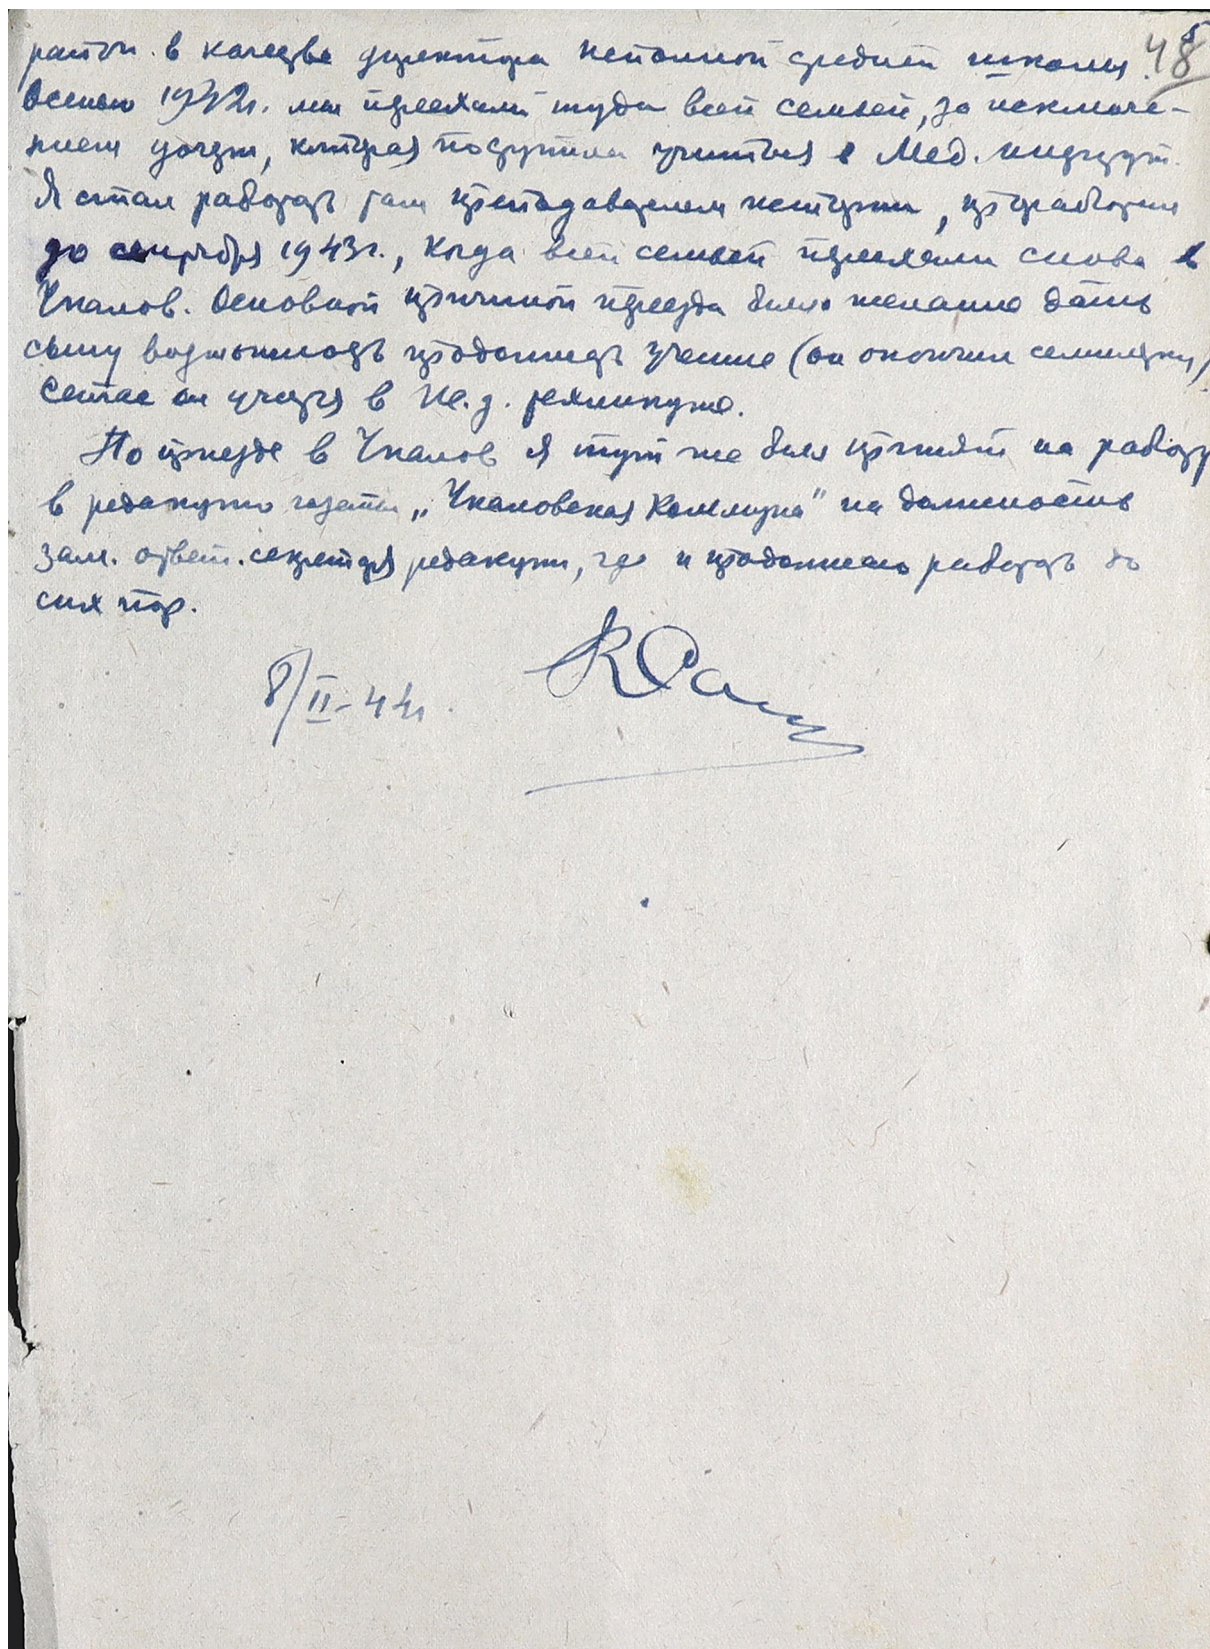 район в качестве директора неполной средней школы. 48
Осенью 1942г. мы переехали туда всей семьей, за исключе-
нием дочери, которая поступила учиться в Мед. институт.
Я стал работать там преподавателем истории, проработал
до сентября 1943г., когда всей семьей переехали снова в
Чкалов. Основной причиной переезда было желание дать
сыну возможность продолжать учение (он окончил семилетку)
Сейчас он учится в Ж.д. техникуме.
По приезде в Чкалов я тут же был принят на работу
в редакцию газеты „Чкаловская Коммуна" на должность
зам. ответ. секретаря редакции, где и продолжаю работать до
сих пор.
8/II-44г.